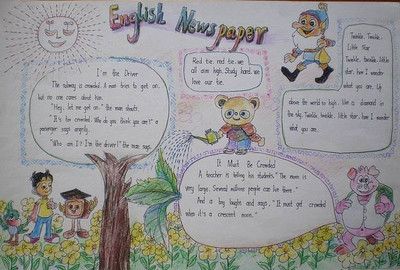 English Newspaper
I'm the Driver
The subway is crowded. A man tries to get on,
but no one cares about him.
"Hey, let me get on." the man shouts.
"It's too crowded. Who do you think you are?" a
passenger says angrily.
"Who am I? I'm the driver!" the man says.
Red tie, red tie, we
all aim high. Study hard, we
love our tie.
Twinkle, Twinkle,
Little Star
Twinkle, twinkle, little
star, how I wonder
what you are. Up
above the world so high, like a diamond in
the sky. Twinkle, twinkle, little star, how I wonder
what you are.
It Must Be Crowded
A teacher is telling his students, "The moon is
very large. Several millions people can live there."
And a boy laughs and says, "It must get crowded
when it's a crescent moon."